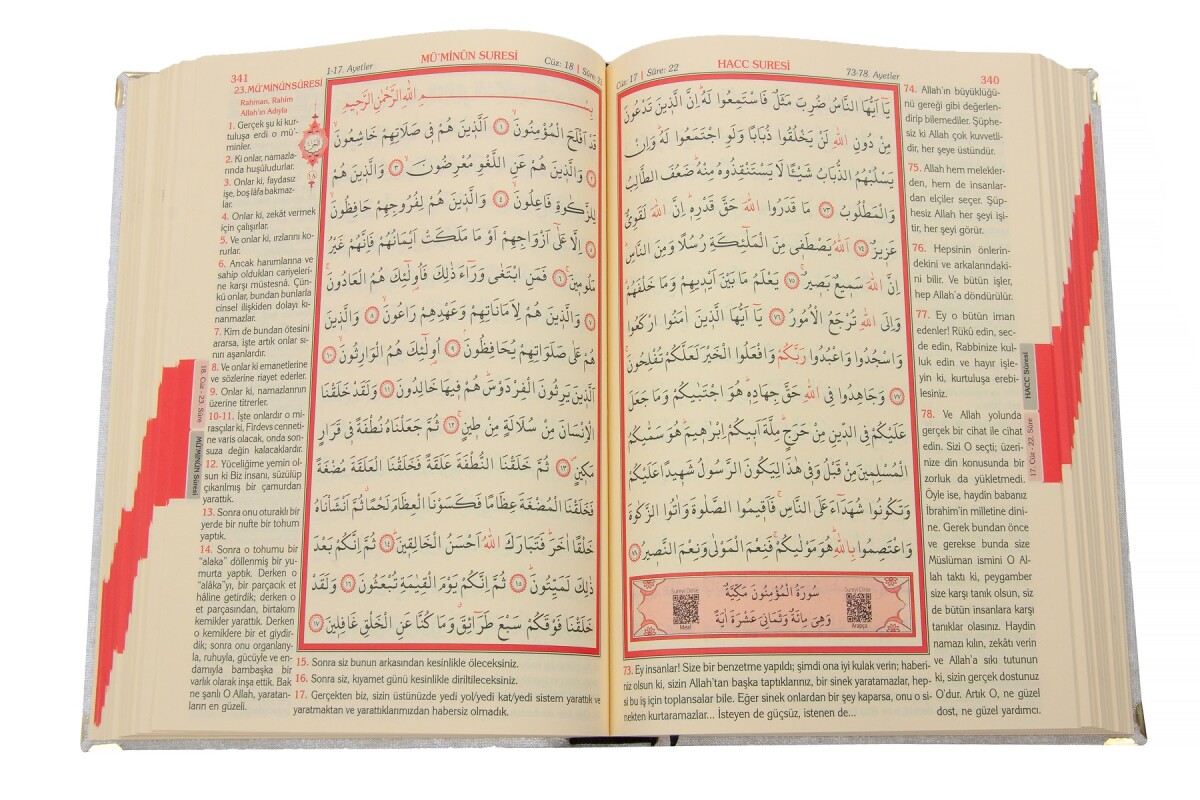 340
HACC SURESİ
Cüz: 17 | Sûre: 22
73-78. Ayetler
يَٓا اَيُّهَا النَّاسُ ضُرِبَ مَثَلٌ فَاسْتَمِعُوا لَهُۜ اِنَّ الَّذ۪ينَ تَدْعُونَ
مِنْ دُونِ اللّٰهِ لَنْ يَخْلُقُوا ذُبَابًا وَلَوِ اجْتَمَعُوا لَهُۜ وَاِنْ
يَسْلُبْهُمُ الذُّبَابُ شَيْـًٔا لَا يَسْتَنْقِذُوهُ مِنْهُۜ ضَعُفَ الطَّالِبُ
وَالْمَطْلُوبُ ﴿٧٣﴾ مَا قَدَرُوا اللّٰهَ حَقَّ قَدْرِه۪ۜ اِنَّ اللّٰهَ لَقَوِيٌّ
عَز۪يزٌ ﴿٧٤﴾ اَللّٰهُ يَصْطَف۪ي مِنَ الْمَلٰٓئِكَةِ رُسُلًا وَمِنَ النَّاسِۜ
اِنَّ اللّٰهَ سَم۪يعٌ بَص۪يرٌۚ ﴿٧٥﴾ يَعْلَمُ مَا بَيْنَ اَيْد۪يهِمْ وَمَا خَلْفَهُمْۜ
وَاِلَى اللّٰهِ تُرْجَعُ الْاُمُورُ ﴿٧٦﴾ يَٓا اَيُّهَا الَّذ۪ينَ اٰمَنُوا ارْكَعُوا
وَاسْجُدُوا وَاعْبُدُوا رَبَّكُمْ وَافْعَلُوا الْخَيْرَ لَعَلَّكُمْ تُفْلِحُونَۚ
﴿٧٧﴾ وَجَاهِدُوا فِي اللّٰهِ حَقَّ جِهَادِه۪ۜ هُوَ اجْتَبٰيكُمْ وَمَا جَعَلَ
عَلَيْكُمْ فِي الدّ۪ينِ مِنْ حَرَجٍۜ مِلَّةَ اَب۪يكُمْ اِبْرٰه۪يمَۜ هُوَ سَمّٰيكُمُ
الْمُسْلِم۪ينَ مِنْ قَبْلُ وَف۪ي هٰذَا لِيَكُونَ الرَّسُولُ شَه۪يدًا عَلَيْكُمْ
وَتَكُونُوا شُهَدَٓاءَ عَلَى النَّاسِۚ فَاَق۪يمُوا الصَّلٰوةَ وَاٰتُوا الزَّكٰوةَ
وَاعْتَصِمُوا بِاللّٰهِۜ هُوَ مَوْلٰيكُمْۚ فَنِعْمَ الْمَوْلٰى وَنِعْمَ النَّص۪يرُ ﴿٧٨﴾
سُورَةُ الْمُؤْمِنُونَ مَكِّيَّةٌ
وَهِيَ مِائَةٌ وَثَمَانِيَ عَشْرَةَ اٰيَةً
Sureyi Dinle
Meal
Sureyi Dinle
Arapça
73. Ey insanlar! Size bir benzetme yapıldı; şimdi ona iyi kulak verin; haberi-
niz olsun ki, sizin Allah'tan başka taptıklarınız, bir sinek yaratamazlar, hep-
si bu iş için toplansalar bile. Eğer sinek onlardan bir şey kaparsa, onu o si-
nekten kurtaramazlar... İsteyen de güçsüz, istenen de...
74. Allah'ın büyüklüğü-
nü gereği gibi değerlen-
dirip bilemediler. Şüphe-
siz ki Allah çok kuvvetli-
dir, her şeye üstündür.
75. Allah hem melekler-
den, hem de insanlar-
dan elçiler seçer. Şüp-
hesiz Allah her şeyi işi-
tir, her şeyi görür.
76. Hepsinin önlerin-
dekini ve arkalarındaki-
ni bilir. Ve bütün işler,
hep Allah'a döndürülür.
77. Ey o bütün iman
edenler! Rükû edin, sec-
de edin, Rabbinize kul-
luk edin ve hayır işle-
yin ki, kurtuluşa erebi-
lesiniz.
78. Ve Allah yolunda
gerçek bir cihat ile cihat
edin. Sizi O seçti; üzeri-
nize din konusunda bir
zorluk da yükletmedi.
Öyle ise, haydin babanız
İbrahim'in milletine dini-
ne. Gerek bundan önce
ve gerekse bunda size
Müslüman ismini O Al-
lah taktı ki, peygamber
size karşı tanık olsun, siz
de bütün insanlara karşı
tanıklar olasınız. Haydin
namazı kılın, zekâtı verin
ve Allah'a sıkı tutunun
ki, sizin gerçek dostunuz
O'dur. Artık O, ne güzel
dost, ne güzel yardımcı.
HACC Sûresi
17. Cüz - 22. Sûre
341
MÜ'MİNÛN SURESİ
1-17. Ayetler
Cüz: 18 | Sûre: 23
بِسْمِ اللّٰهِ الرَّحْمٰنِ الرَّح۪يمِ
قَدْ اَفْلَحَ الْمُؤْمِنُونَۙ ﴿١﴾ اَلَّذ۪ينَ هُمْ ف۪ي صَلَاتِهِمْ خَاشِعُونَۙ
﴿٢﴾ وَالَّذ۪ينَ هُمْ عَنِ اللَّغْوِ مُعْرِضُونَۙ ﴿٣﴾ وَالَّذ۪ينَ هُمْ
لِلزَّكٰوةِ فَاعِلُونَۙ ﴿٤﴾ وَالَّذ۪ينَ هُمْ لِفُرُوجِهِمْ حَافِظُونَۙ
﴿٥﴾ اِلَّا عَلٰٓى اَزْوَاجِهِمْ اَوْ مَا مَلَكَتْ اَيْمَانُهُمْ فَاِنَّهُمْ غَيْرُ
مَلُوم۪ينَۚ ﴿٦﴾ فَمَنِ ابْتَغٰى وَرَٓاءَ ذٰلِكَ فَاُو۬لٰٓئِكَ هُمُ الْعَادُونَۚ
﴿٧﴾ وَالَّذ۪ينَ هُمْ لِاَمَانَاتِهِمْ وَعَهْدِهِمْ رَاعُونَۙ ﴿٨﴾ وَالَّذ۪ينَ
هُمْ عَلٰى صَلَوَاتِهِمْ يُحَافِظُونَۢ ﴿٩﴾ اُو۬لٰٓئِكَ هُمُ الْوَارِثُونَۙ ﴿١٠﴾
اَلَّذ۪ينَ يَرِثُونَ الْفِرْدَوْسَۜ هُمْ ف۪يهَا خَالِدُونَ ﴿١١﴾ وَلَقَدْ خَلَقْنَا
الْاِنْسَانَ مِنْ سُلَالَةٍ مِنْ ط۪ينٍۚ ﴿١٢﴾ ثُمَّ جَعَلْنَاهُ نُطْفَةً ف۪ي قَرَارٍ
مَك۪ينٍۖ ﴿١٣﴾ ثُمَّ خَلَقْنَا النُّطْفَةَ عَلَقَةً فَخَلَقْنَا الْعَلَقَةَ مُضْغَةً
فَخَلَقْنَا الْمُضْغَةَ عِظَامًا فَكَسَوْنَا الْعِظَامَ لَحْمًاۗ ثُمَّ اَنْشَأْنَاهُ
خَلْقًا اٰخَرَۜ فَتَبَارَكَ اللّٰهُ اَحْسَنُ الْخَالِق۪ينَۜ ﴿١٤﴾ ثُمَّ اِنَّكُمْ بَعْدَ
ذٰلِكَ لَمَيِّتُونَۜ ﴿١٥﴾ ثُمَّ اِنَّكُمْ يَوْمَ الْقِيٰمَةِ تُبْعَثُونَ ﴿١٦﴾ وَلَقَدْ
خَلَقْنَا فَوْقَكُمْ سَبْعَ طَرَٓائِقَۗ وَمَا كُنَّا عَنِ الْخَلْقِ غَافِل۪ينَ ﴿١٧﴾
23.MÜ'MİNÛN SÛRESİ
Rahman, Rahim
Allah'ın Adıyla
1. Gerçek şu ki kur-
tuluşa erdi o mü'-
minler.
2. Ki onlar, namazla-
rında huşûludurlar.
3. Onlar ki, faydasız
işe, boş lâfa bakmaz-
lar.
4. Onlar ki, zekât vermek
için çalışırlar.
5. Ve onlar ki, ırzlarını ko-
rurlar.
6. Ancak hanımlarına ve
sahip oldukları cariyeleri-
ne karşı müstesnâ. Çün-
kü onlar, bundan bunlarla
cinsel ilişkiden dolayı kı-
nanmazlar.
7. Kim de bundan ötesini
ararsa, işte artık onlar sı-
nırı aşanlardır.
8. Ve onlar ki emanetlerine
ve sözlerine riayet ederler.
9. Onlar ki, namazlarının
üzerine titrerler.
10-11. İşte onlardır o mi-
rasçılar ki, Firdevs cenneti-
ne varis olacak, onda son-
suza değin kalacaklardır.
12. Yüceliğime yemin ol-
sun ki Biz insanı, süzülüp
çıkarılmış bir çamurdan
yarattık.
13. Sonra onu oturaklı bir
yerde bir nufte bir tohum
yaptık.
14. Sonra o tohumu bir
"alaka" döllenmiş bir yu-
murta yaptık. Derken o
"alâka"yı, bir parçacık et
hâline getirdik; derken o
et parçasından, birtakım
kemikler yarattık. Derken
o kemiklere bir et giydir-
dik; sonra onu organlany-
la, ruhuyla, gücüyle ve en-
damıyla bambaşka bir
varlık olarak inşa ettik. Bak
ne şanlı O Allah, yaratan-
ların en güzeli.
15. Sonra siz bunun arkasından kesinlikle öleceksiniz.
16. Sonra siz, kıyamet günü kesinlikle diriltileceksiniz.
17. Gerçekten biz, sizin üstünüzde yedi yol/yedi kat/yedi sistem yarattık ve
yaratmaktan ve yarattıklarımızdan habersiz olmadık.
18. Cüz - 23. Sûre
MÜ'MİNÛN Sûresi